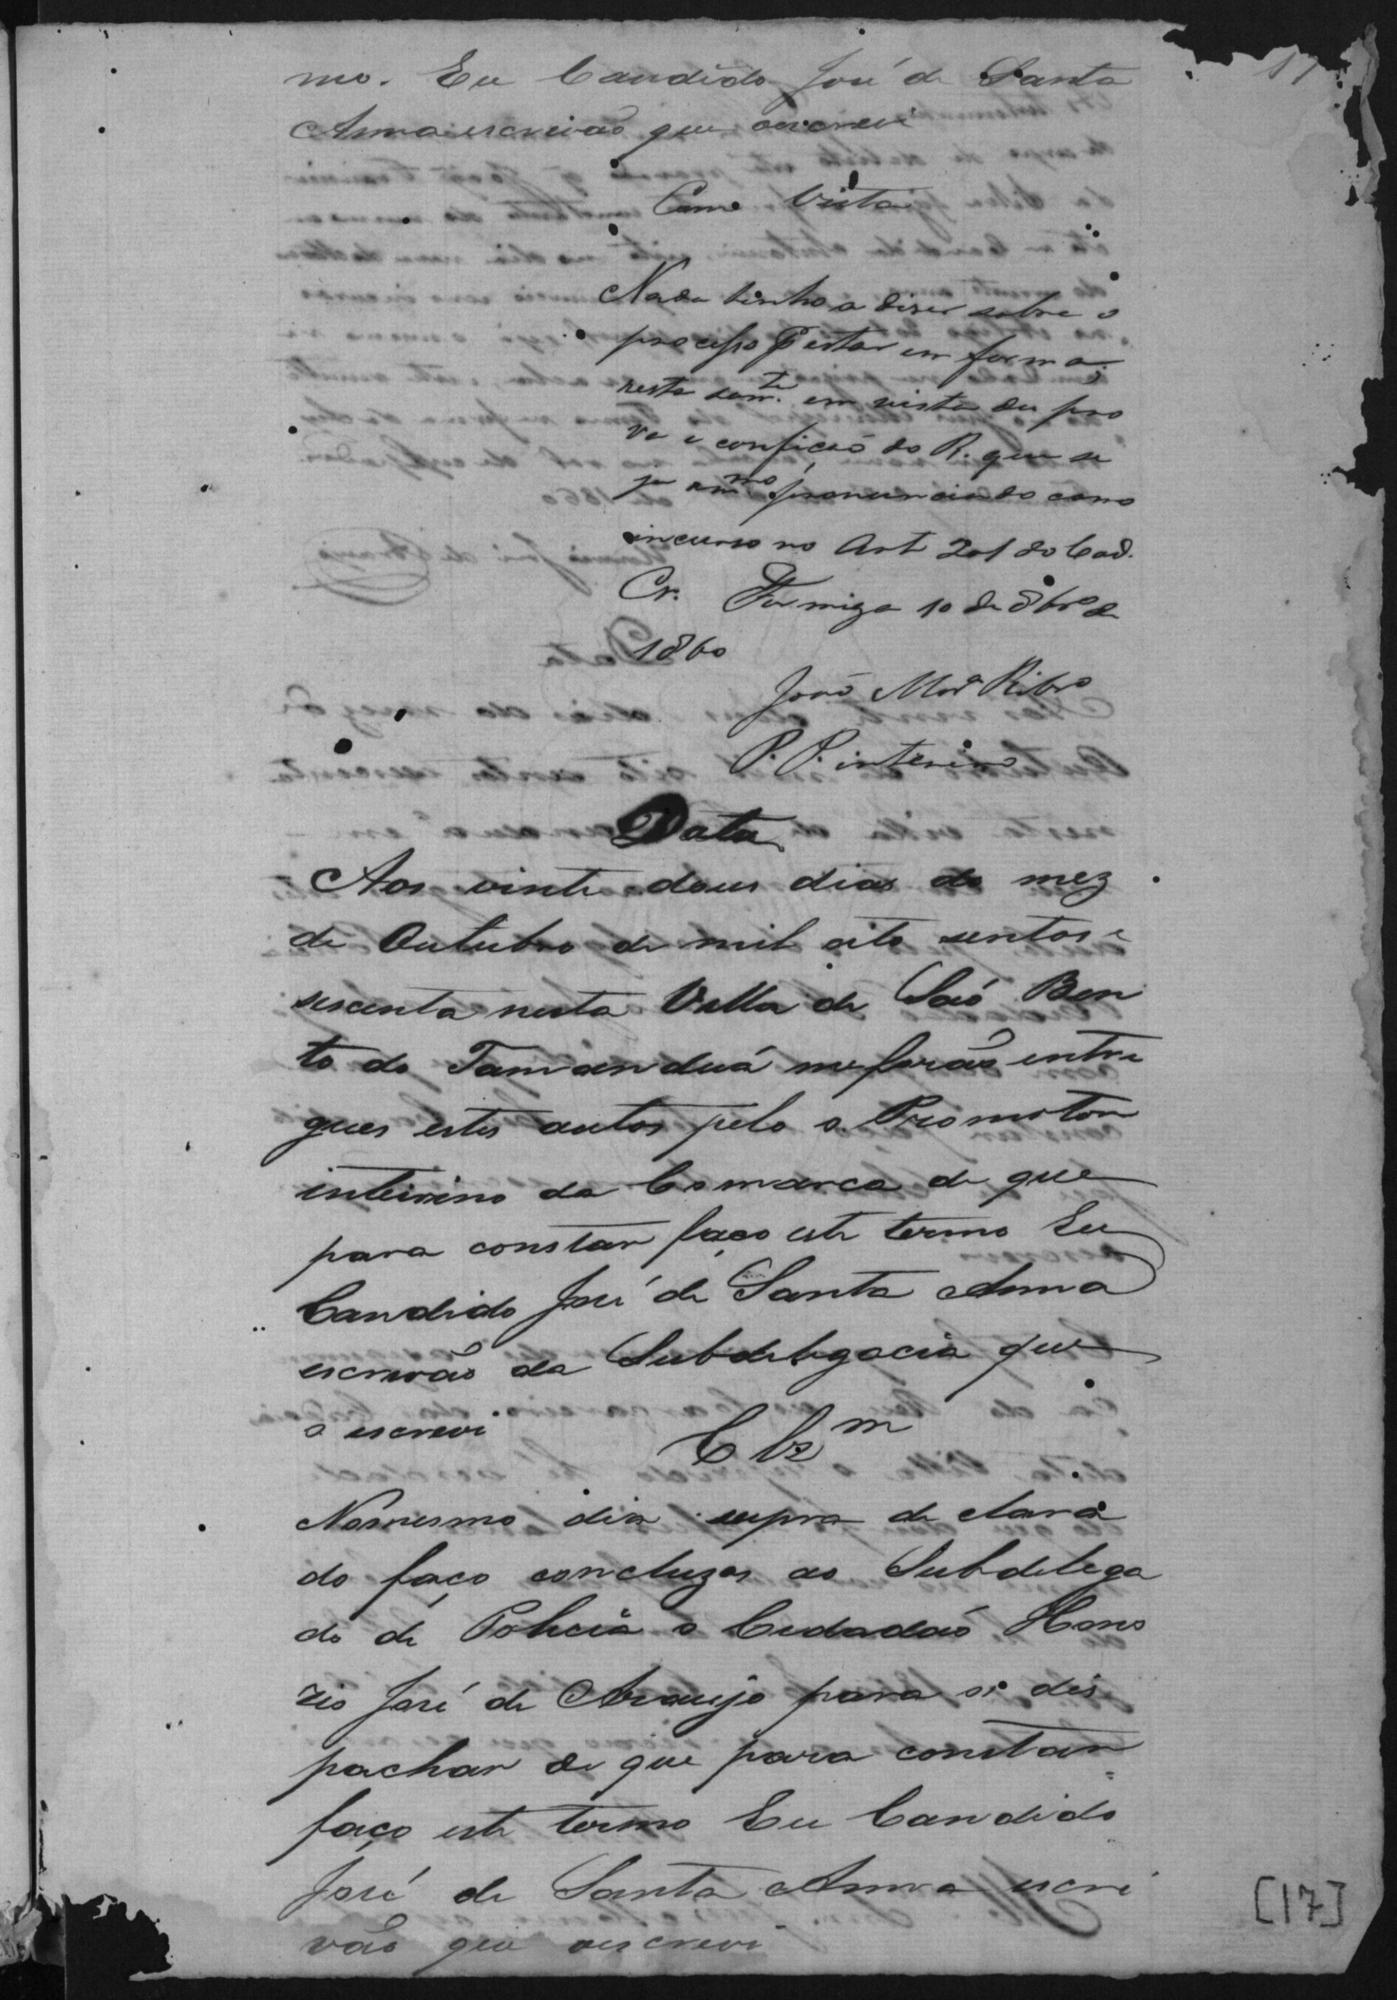 17
mo. Eu Candido José de Santa
Anna escrivaõ que oescrevi
Com Vista
Nada tenho a diser sobre o
processo p estar em forma,
resta som.te em vista da pro
va e conficaõ do R. que se
ja o mmo pronunciado como
incurso no Art 201 do Cod.
Cr. Formiga 10 de 8bro de
1860
João Mor.a Ribro
P. P. interino
Data
Aos vinte dous dias do mez
de Outubro de mil oito sentos e
secenta nesta Villa de Saõ Ben
to do Tamanduá me foraõ entre
gues estes autos pelo o Promotor
interino da Comarca de que
para constar faço este termo Eu
Candido José de Santa Anna
escrivaõ da Subdelegacia que
o escrevi
Clzm
Nomesmo dia supra de clara
do faço concluzos ao Subdelega
do de Policia o Cidadaõ Hono
rio José de Araujo para os dis
pachar de que para constar
faço este termo Eu Candido
José de Santa Anna escri
vaõ que oescrevi
[17]